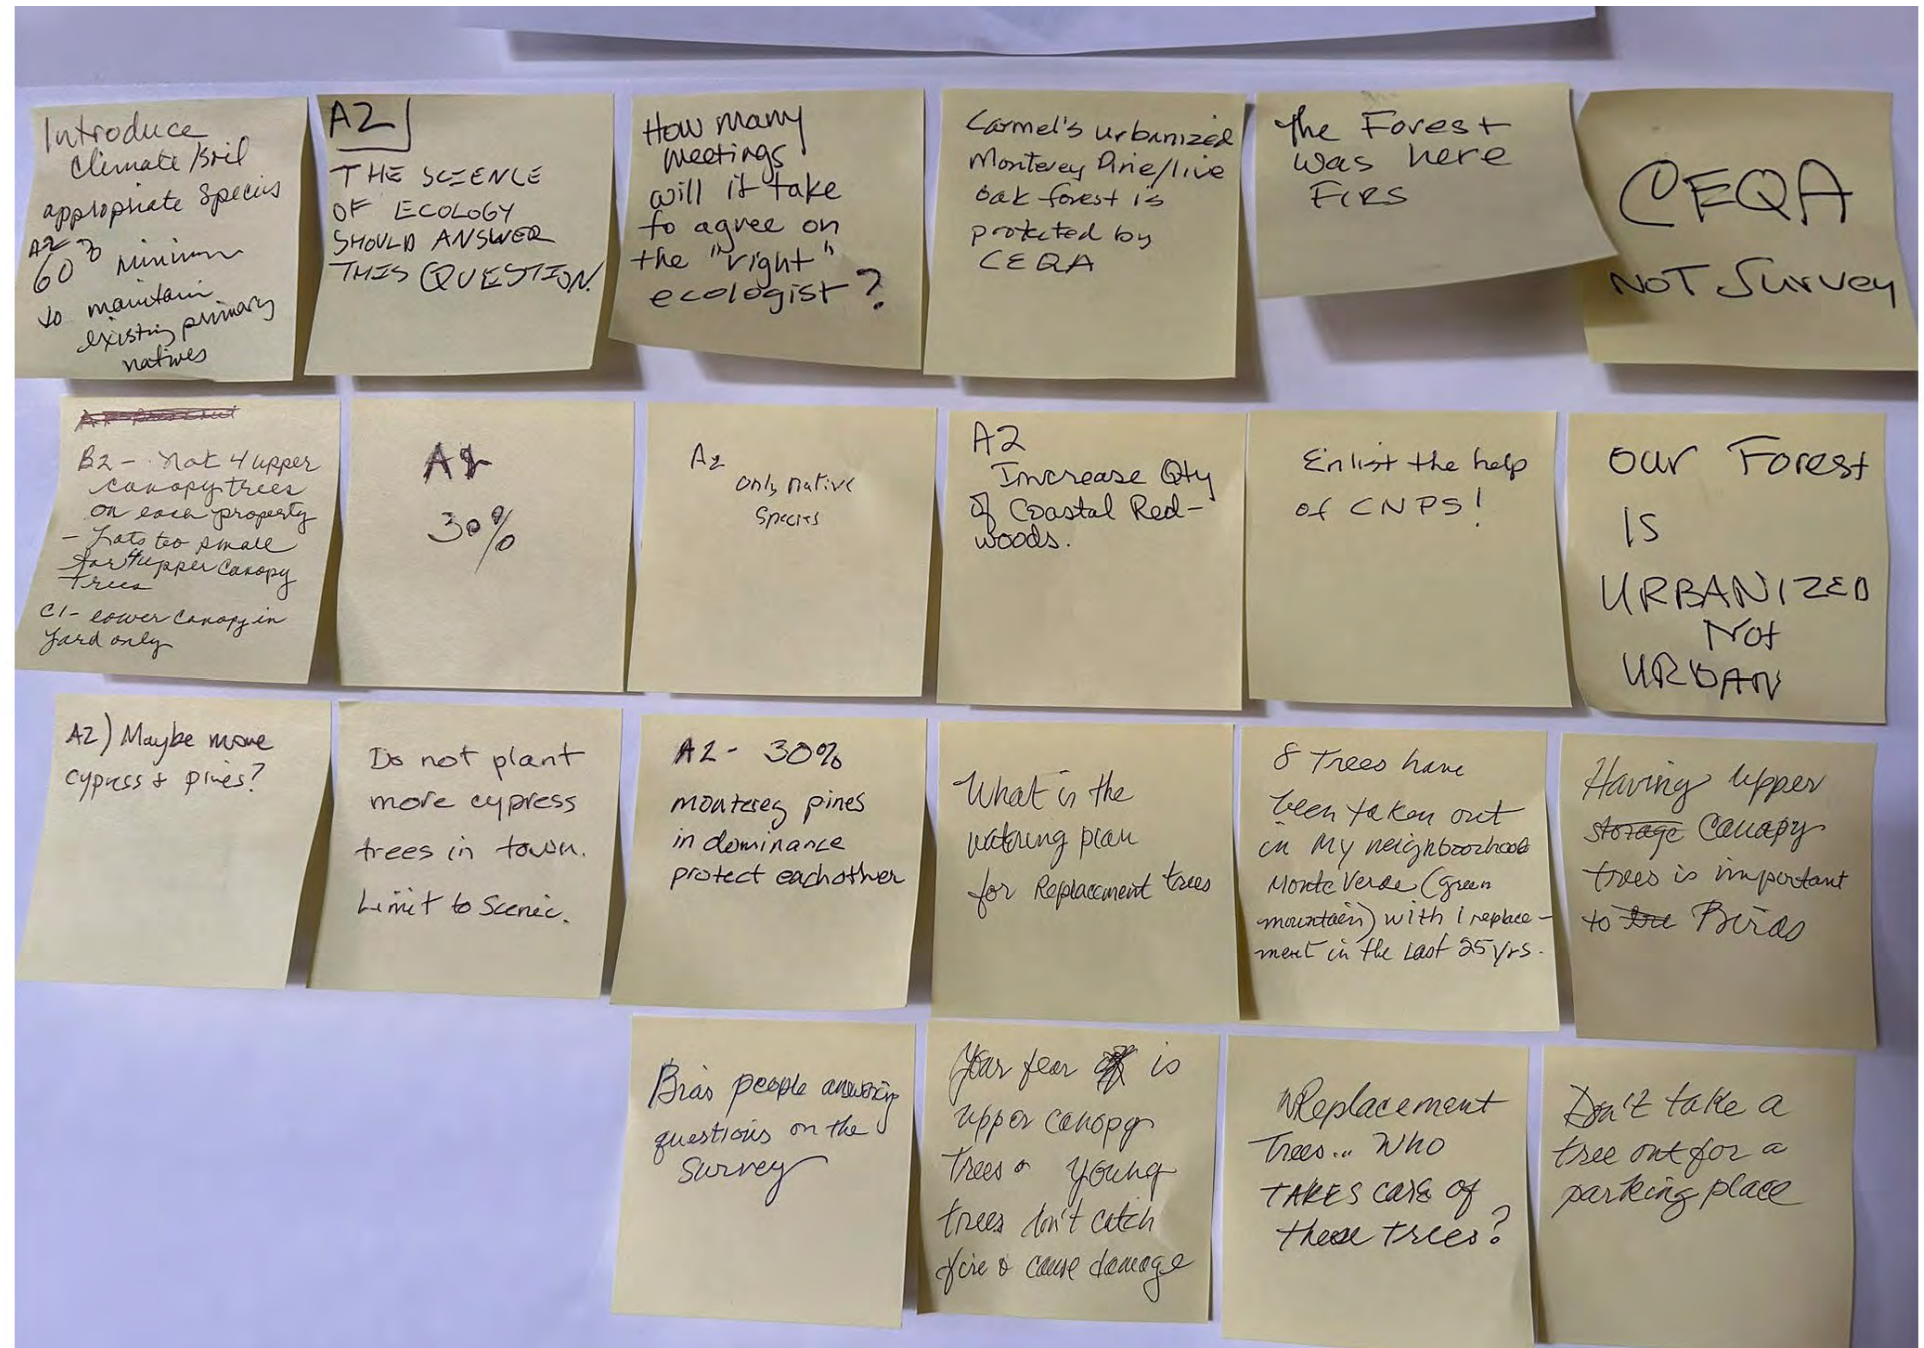 Introduce
Climate/Soil
appropriate Species
A2
60% minimum
to maintain
existing primary
natives
A2
THE SCIENCE
OF ECOLOGY
SHOULD ANSWER
THIS QUESTION.
How many
meetings
will it take
to agree on
the "right"
ecologist?
Carmel's urbanized
Monterey Pine/live
oak forest is
protected by
CEQA
The Forest
was here
FIRS
CEQA
NOT Survey
B2 - Not 4 upper
canopy trees
on each property
- Lots too small
for 4 upper canopy
Trees
C1- lower canopy in
yard only
A2
30%
A2
only native
species
A2
Increase Qty
of Coastal Red-
woods.
Enlist the help
of CNPS!
OUR Forest
IS
URBANIZED
Not
URBAN
A2) Maybe more
cypress & pines?
Do not plant
more cypress
trees in town.
Limit to Scenic.
A2- 30%
monterey pines
in dominance
protect eachother
What is the
watering plan
for Replacement trees
8 Trees have
been taken out
in my neighborhood
Monte Verde (green
mountain) with 1 replace-
ment in the last 25 yrs.
Having upper
storage Canopy
trees is important
to Birds
Bias people answering
questions on the
Survey
Your fear is
upper canopy
Trees & young
trees don't catch
fire & cause damage
Replacement
Trees... WHO
TAKES care of
these trees?
Don't take a
tree out for a
parking place